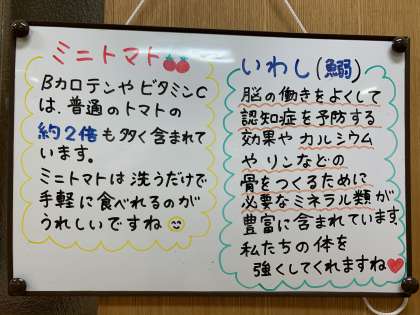 ミニトマト
βカロテンや ビタミンC
は、普通のトマトの
約2倍も多く含まれて
います。
ミニトマトは洗うだけで
手軽に食べれるのが
うれしいですね
いわし(鰯)
脳の働きをよくして
認知症を予防する
効果や カルシウム
や リンなどの
骨をつくるために
必要なミネラル類が
豊富に含まれています。
私たちの体を
強くしてくれますね